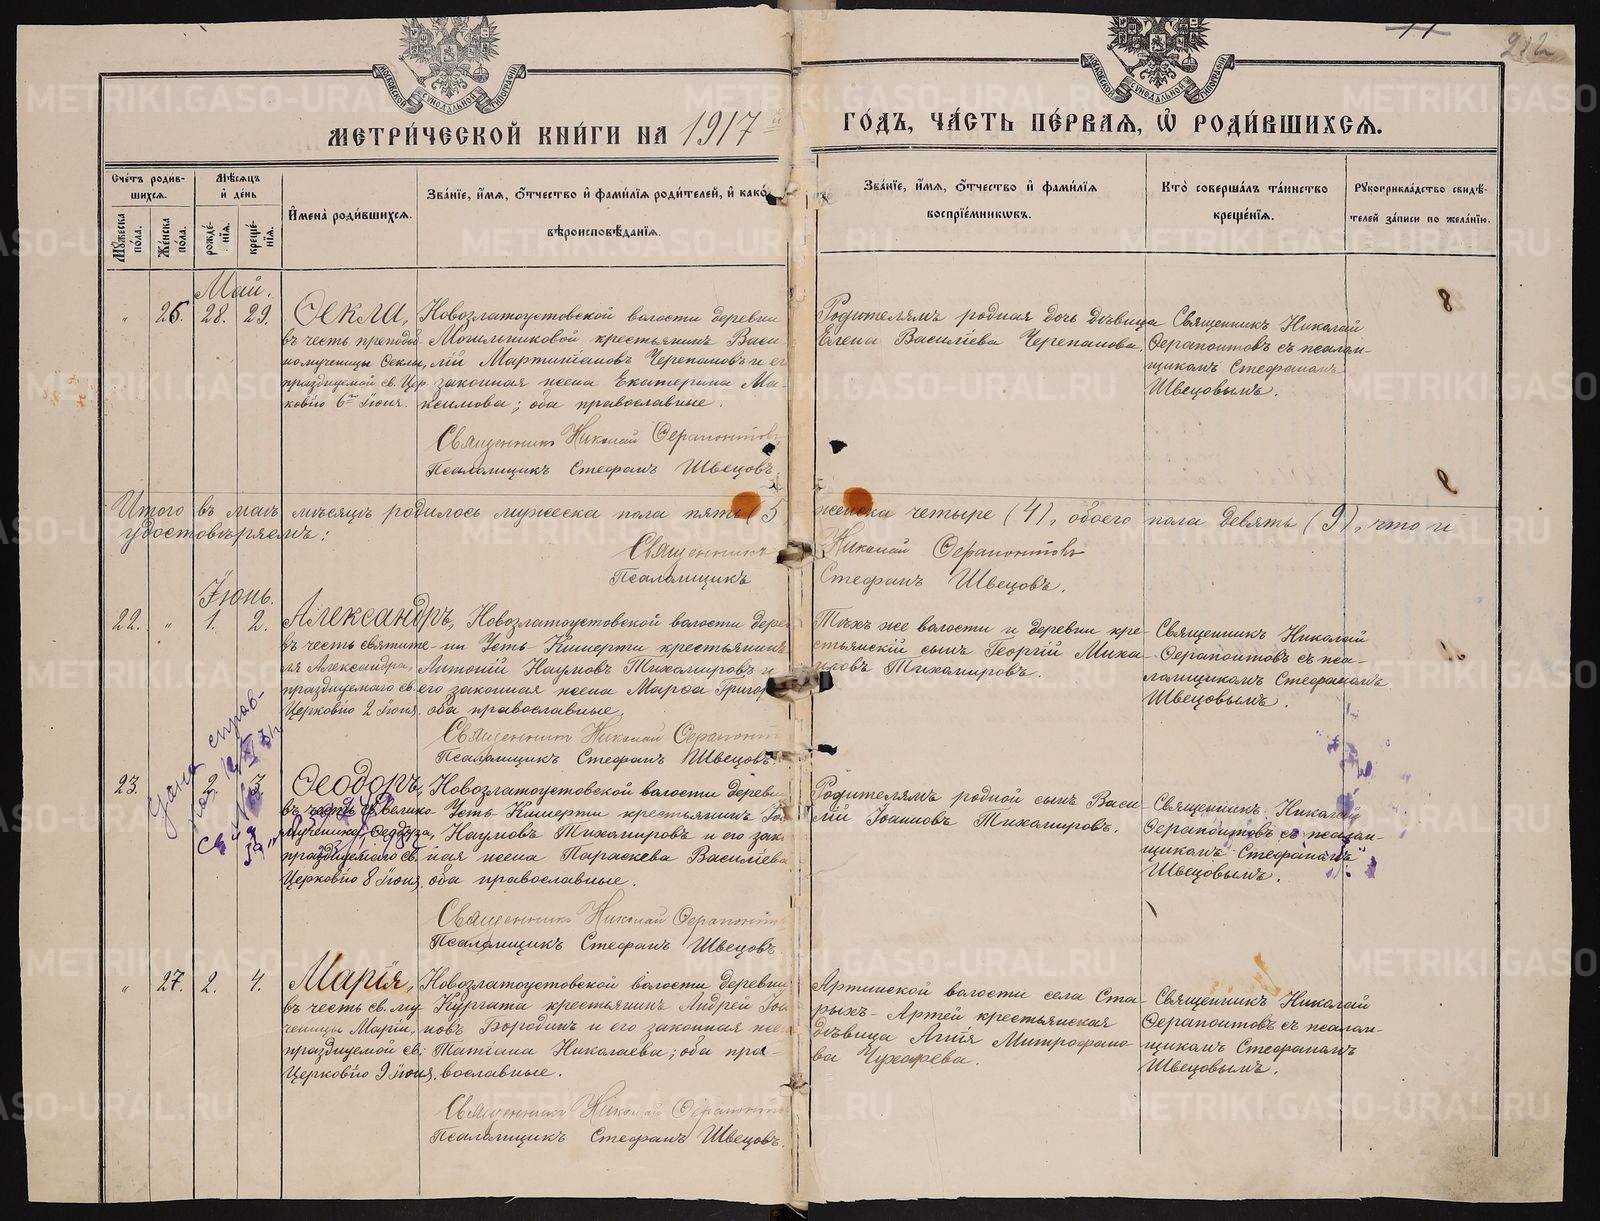 МОСКОВСКОЙ СУНОДАЛЬНОЙ ТИПОГРАФІИ
МОСКОВСКОЙ СУНОДАЛЬНОЙ ТИПОГРАФІИ
МЕТРИ́ЧЕСКОЙ КНИ́ГИ НА 1917 й ГО́ДЪ, ЧА́СТЬ ПЕ́РВАѦ, Ѡ҆ РОДИ́ВШИХСѦ.
Сче́тъ роди́вшихсѧ.
Мꙋ́жеска по́ла.
Же́нска по́ла.
Мѣ́сѧцъ и҆ де́нь
рожде́нїѧ.
креще́нїѧ.
И҆мена̀ роди́вшихсѧ.
Зва́нїе, и҆́мѧ, ѻ҆́тчество и҆ фами́лїѧ роди́телей, и҆ како́
вѣроисповѣ́данїѧ.
Зва́нїе, и҆́мѧ, ѻ҆́тчество и҆ фами́лїѧ
воспрїе́мникѡвъ.
Кто̀ соверша́лъ та́инство
креще́нїѧ.
Рꙋкоприкла́дство свидѣ́-
телей за́писи по жела́нїю.
Май.
" 26. 28. 29.
Ѳекла,
въ честь преподоб-
номученицы Ѳеклы,
празднуемой св. Цер-
ковію 6го Іюня.
Новозлатоустовской волости деревни
Могильниковой крестьянинъ Васи
лій Мартиніановъ Черепановъ и ег
законная жена Екатерина Ма-
ксимова; оба православные.
Священникъ Николай Ѳерапонтовъ
Псаломщикъ Стефанъ Швецовъ.
Родителямъ родная дочь дѣвица
Елена Василіева Черепанова.
Священникъ Николай
Ѳерапонтовъ съ псалом-
щикомъ Стефаномъ
Швецовымъ.
Итого въ маѣ мѣсяцѣ родилось мужеска пола пять (5 женска четыре (4), обоего пола девять (9), что и
удостовѣряемъ:
Священникъ Николай Ѳерапонтовъ
Псаломщикъ Стефанъ Швецовъ.
Іюнь.
22. " 1. 2.
Александръ,
въ честь святите-
ля Александра,
празднуемаго св.
Церковію 2 Іюня.
Новозлатоустовской волости дере
ни Усть-Кишерти крестьянинъ
Антоній Наумовъ Тихомировъ и
его законная жена Марѳа Григор
оба православные,
Священникъ Николай Ѳерапонт
Псаломщикъ Стефанъ Швецовъ.
Тѣхъ же волости и деревни кре-
стьянскій сынъ Георгій Миха-
иловъ Тихомировъ.
Священникъ Николай
Ѳерапонтовъ съ пса-
ломщикомъ Стефаномъ
Швецовымъ.
23. 2. 3.
Ѳеодоръ,
въ честь св. велико-
мученика Ѳеодора,
празднуемаго св.
Церковію 8 Іюня.
Новозлатоустовской волости деревн
Усть-Кишерти крестьянинъ Іоа
Наумовъ Тихомировъ и его зак
ная жена Параскева Василіева
оба православные.
Священникъ Николай Ѳерапонт
Псаломщикъ Стефанъ Швецовъ.
Родителямъ родной сынъ Васи-
лій Іоанновъ Тихомировъ.
Священникъ Николай
Ѳерапонтовъ съ псалом-
щикомъ Стефаномъ
Швецовымъ.
" 27. 2. 4.
Марія,
въ честь св. му-
ченицы Маріи,
празднуемой св.
Церковію 9 Іюня.
Новозлатоустовской волости деревни
Кургата крестьянинъ Андрей Іоа
новъ Бородинъ и его законная же
Татіана Николаева; оба пра-
вославные.
Священникъ Николай Ѳерапонт
Псаломщикъ Стефанъ Швецовъ.
Артинской волости села Ста-
рыхъ-Артей крестьянская
дѣвица Агнія Митрофано-
ва
Священникъ Николай
Ѳерапонтовъ съ псалом-
щикомъ Стефаномъ
Швецовымъ.
Дана справ-
METRIKI.GASO-URAL.RU